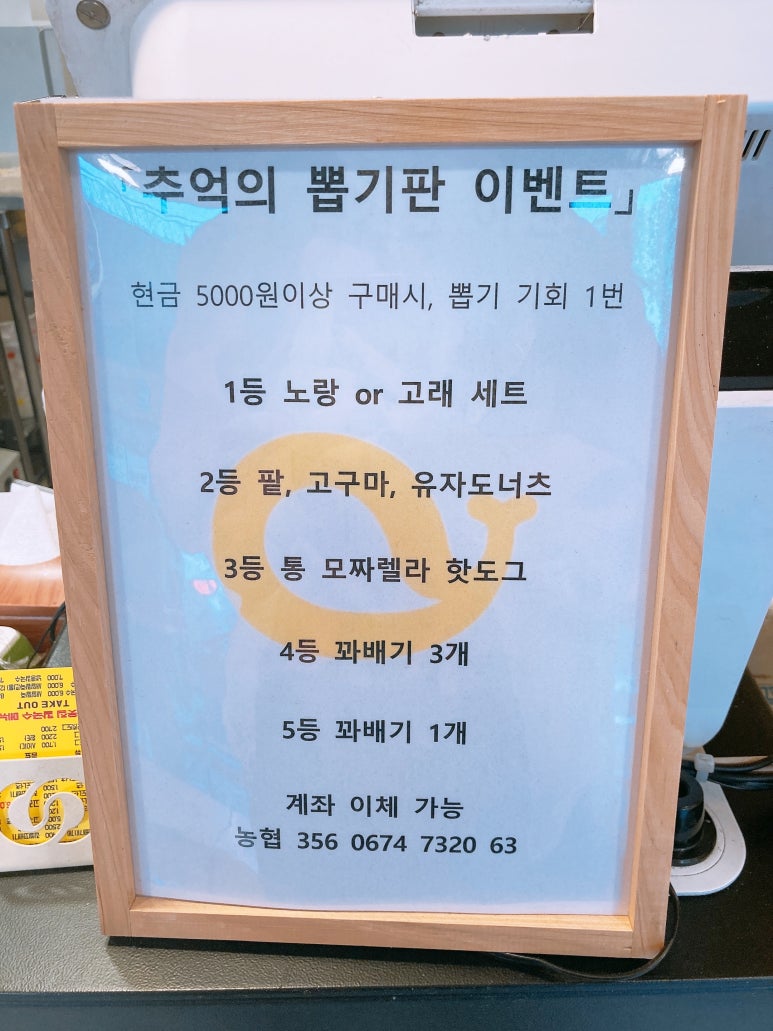 「추억의 뽑기판 이벤트」
현금 5000원이상 구매시, 뽑기 기회 1번
1등 노랑 or 고래 세트
2등 팥, 고구마, 유자도너츠
3등 통 모짜렐라 핫도그
4등 꽈배기 3개
5등 꽈배기 1개
계좌 이체 가능
농협 356 0674 7320 63
TAKE OUT